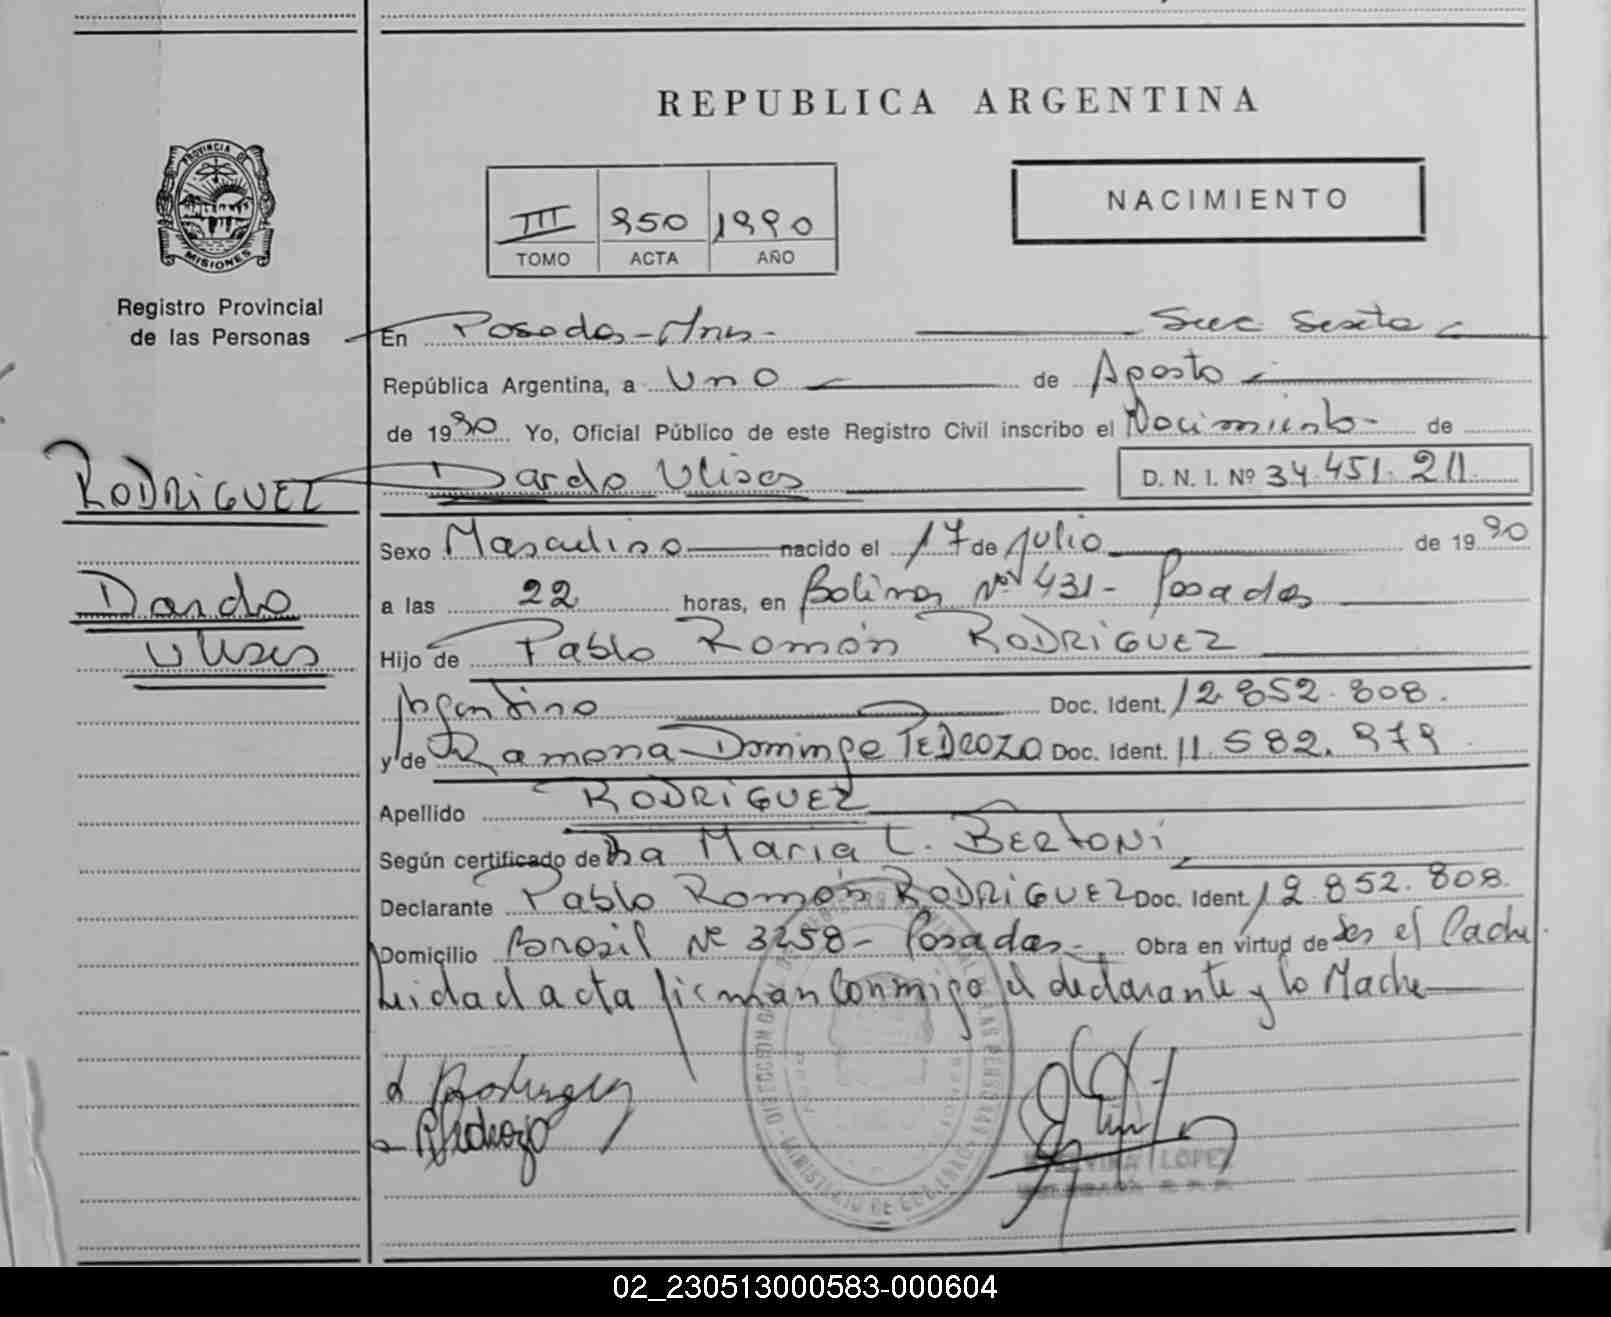 REPUBLICA ARGENTINA
PROVINCIA DE
MISIONES
Registro Provincial
de las Personas
III 950 1990
TOMO ACTA AÑO
NACIMIENTO
En Posadas - Mnes - Secc Sexta
República Argentina, a Uno de Agosto
de 1990 Yo, Oficial Público de este Registro Civil inscribo el Nacimiento - de
RODRIGUEZ
Dardo Ulises D. N. I. Nº 34.451.211
Sexo Masculino nacido el 17 de Julio de 1990
Dardo
Ulises
a las 22 horas, en Bolívar Nº 431 - Posadas
Hijo de Pablo Román RODRIGUEZ
Argentino Doc. Ident. 12.852.808.
y de Ramona Dominga PEDROZO Doc. Ident. 11.582.979.
Apellido RODRIGUEZ
Según certificado de Dra Maria L. BERTONI
Declarante Pablo Román RODRIGUEZ Doc. Ident. 12.852.808.
Domicilio Brasil Nº 3258 - Posadas - Obra en virtud de Ser el Padre.
Leida el acta firman conmigo el declarante y la Madre
Rodriguez
Pedrozo
MINISTERIO DE GOBIERNO
LOPEZ
02_230513000583-000604